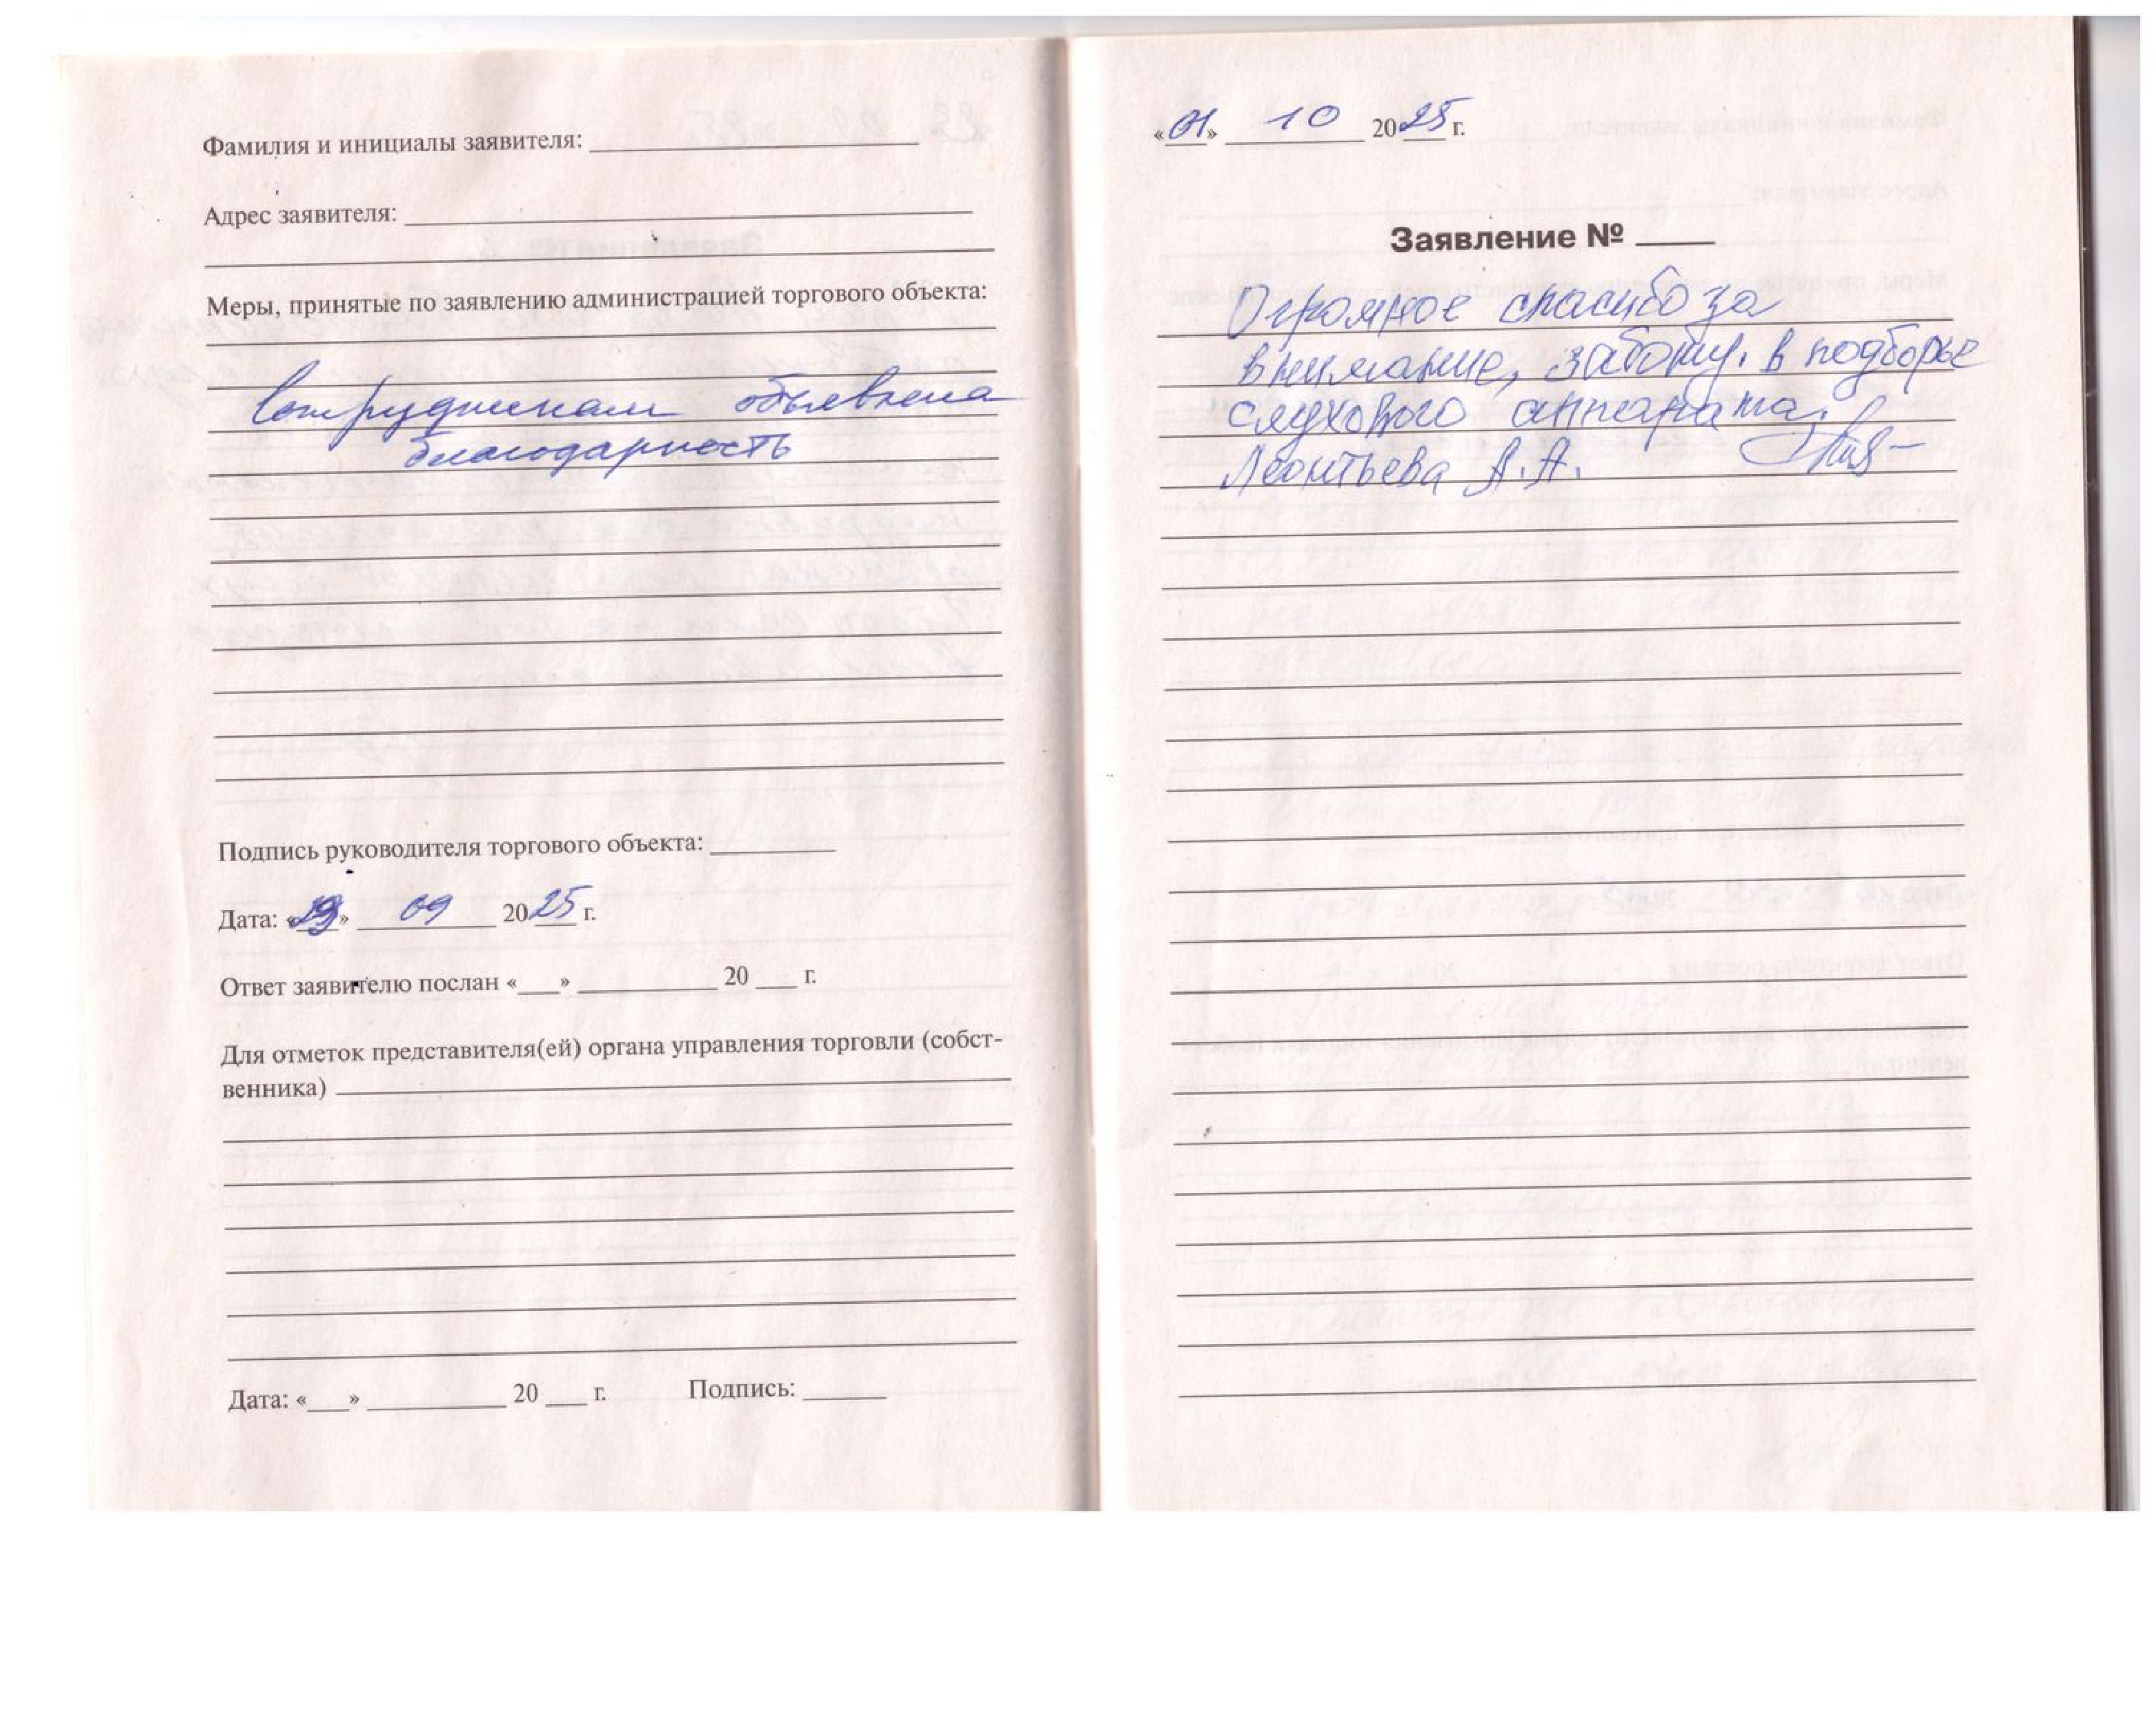 Фамилия и инициалы заявителя:
Адрес заявителя:
Меры, принятые по заявлению администрацией торгового объекта:
Сотрудникам объявлена
благодарность
Подпись руководителя торгового объекта:
Дата: «29» 09 2025 г.
Ответ заявителю послан «___» ______ 20 ___ г.
Для отметок представителя(ей) органа управления торговли (собст-
венника)
Дата: «___» ______ 20 ___ г. Подпись:
«01» 10 2025 г.
Заявление № ____
Огромное спасибо за
внимание, заботу. в подборье
слухового аппарата.
Леонтьева А.А.